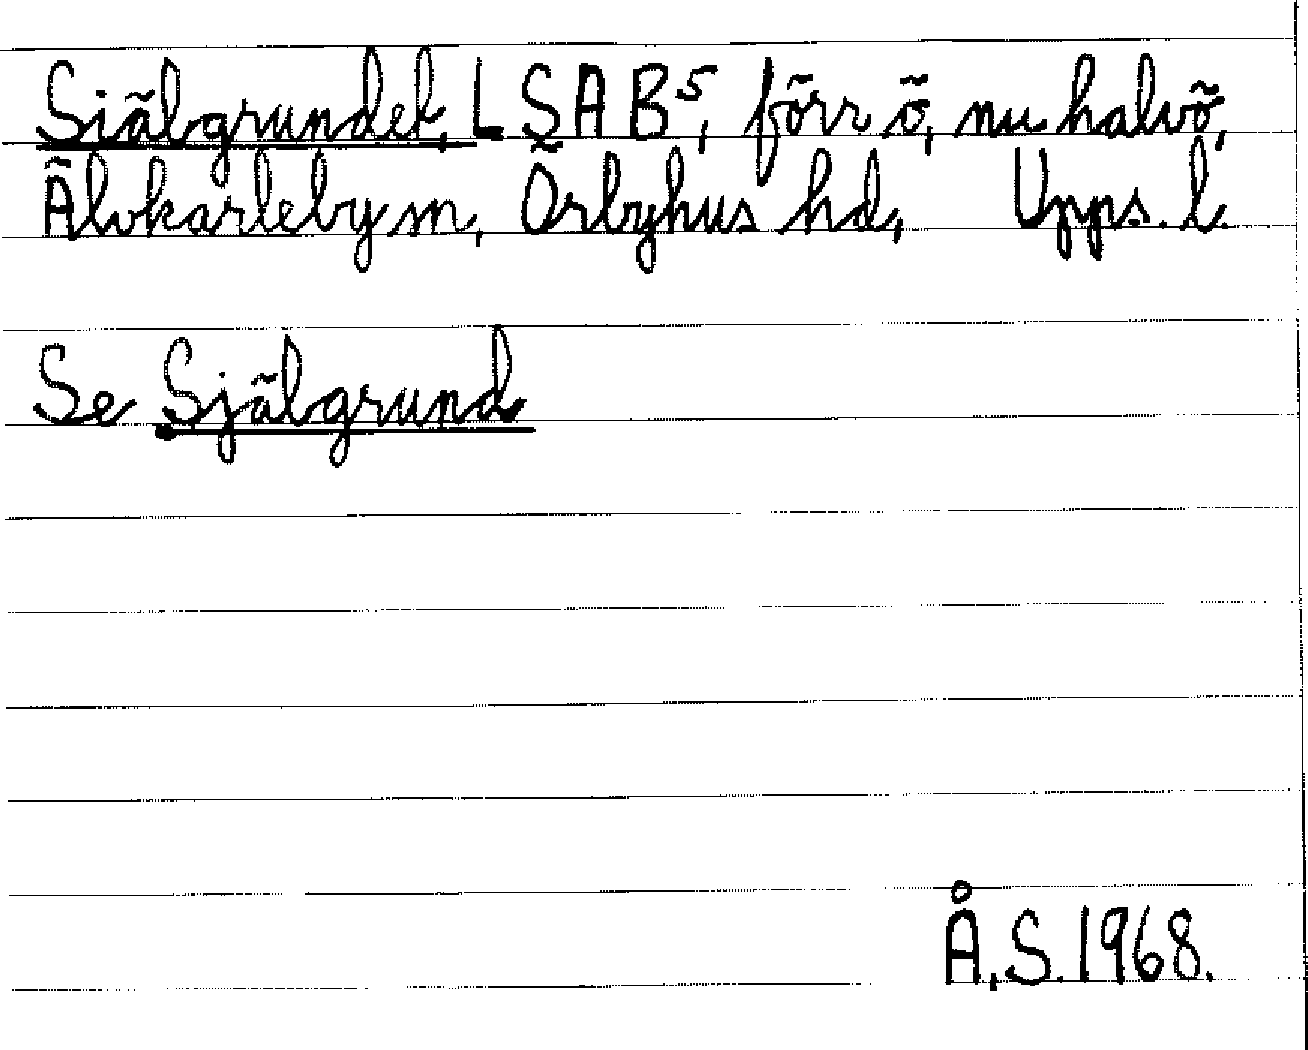 Siälgrundet, L S A B⁵, förr ö, nu halvö,
Älvkarleby sn, Örbyhus hd, Upps. l.
Se Själgrund
Å. S. 1968.